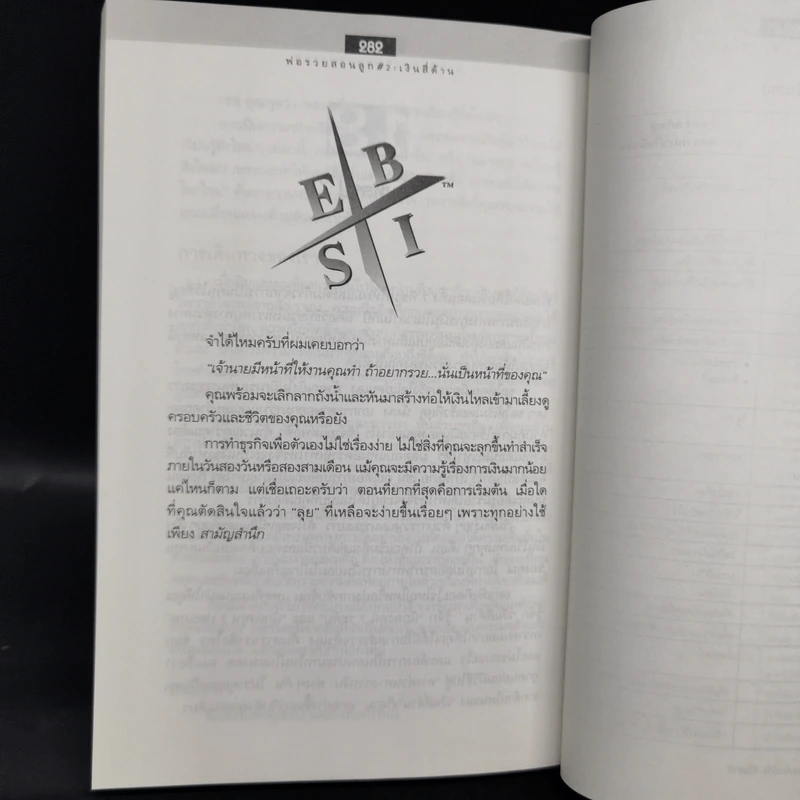 282
พ่อรวยสอนลูก#2:เงินสี่ด้าน
E B
S I
™
จำได้ไหมครับที่ผมเคยบอกว่า
"เจ้านายมีหน้าที่ให้งานคุณทำ ถ้าอยากรวย...นั่นเป็นหน้าที่ของคุณ"
คุณพร้อมจะเลิกลากถังน้ำและหันมาสร้างท่อให้เงินไหลเข้ามาเลี้ยงดู
ครอบครัวและชีวิตของคุณหรือยัง
การทำธุรกิจเพื่อตัวเองไม่ใช่เรื่องง่าย ไม่ใช่สิ่งที่คุณจะลุกขึ้นทำสำเร็จ
ภายในวันสองวันหรือสองสามเดือน แม้คุณจะมีความรู้เรื่องการเงินมากน้อย
แค่ไหนก็ตาม แต่เชื่อเถอะครับว่า ตอนที่ยากที่สุดคือการเริ่มต้น เมื่อใด
ที่คุณตัดสินใจแล้วว่า "ลุย" ที่เหลือจะง่ายขึ้นเรื่อยๆ เพราะทุกอย่างใช้
เพียง สามัญสำนึก